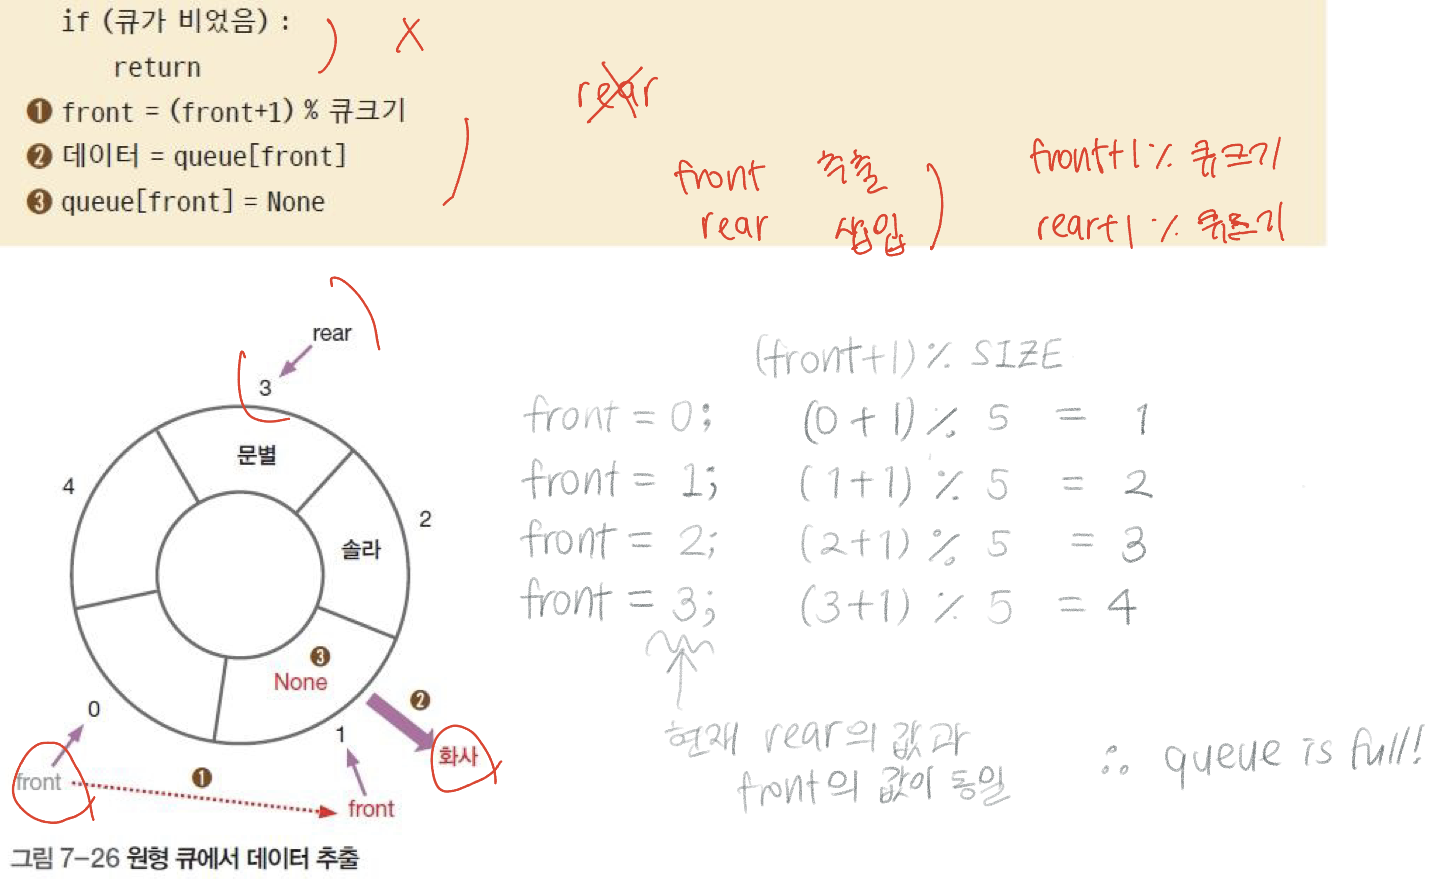 if (큐가 비었음) :
return
X
❶ front = (front+1) % 큐크기
❷ 데이터 = queue[front]
❸ queue[front] = None
rear
front 추출
rear 삽입
front+1 % 큐크기
rear+1 % 큐크기
rear
3
문별
4
2
솔라
❸
None
❷
0
1
화사
front
❶
front
그림 7-26 원형 큐에서 데이터 추출
(front+1) % SIZE
front = 0; (0+1) % 5 = 1
front = 1; (1+1) % 5 = 2
front = 2; (2+1) % 5 = 3
front = 3; (3+1) % 5 = 4
현재 rear의 값과
front의 값이 동일
∴ queue is full!